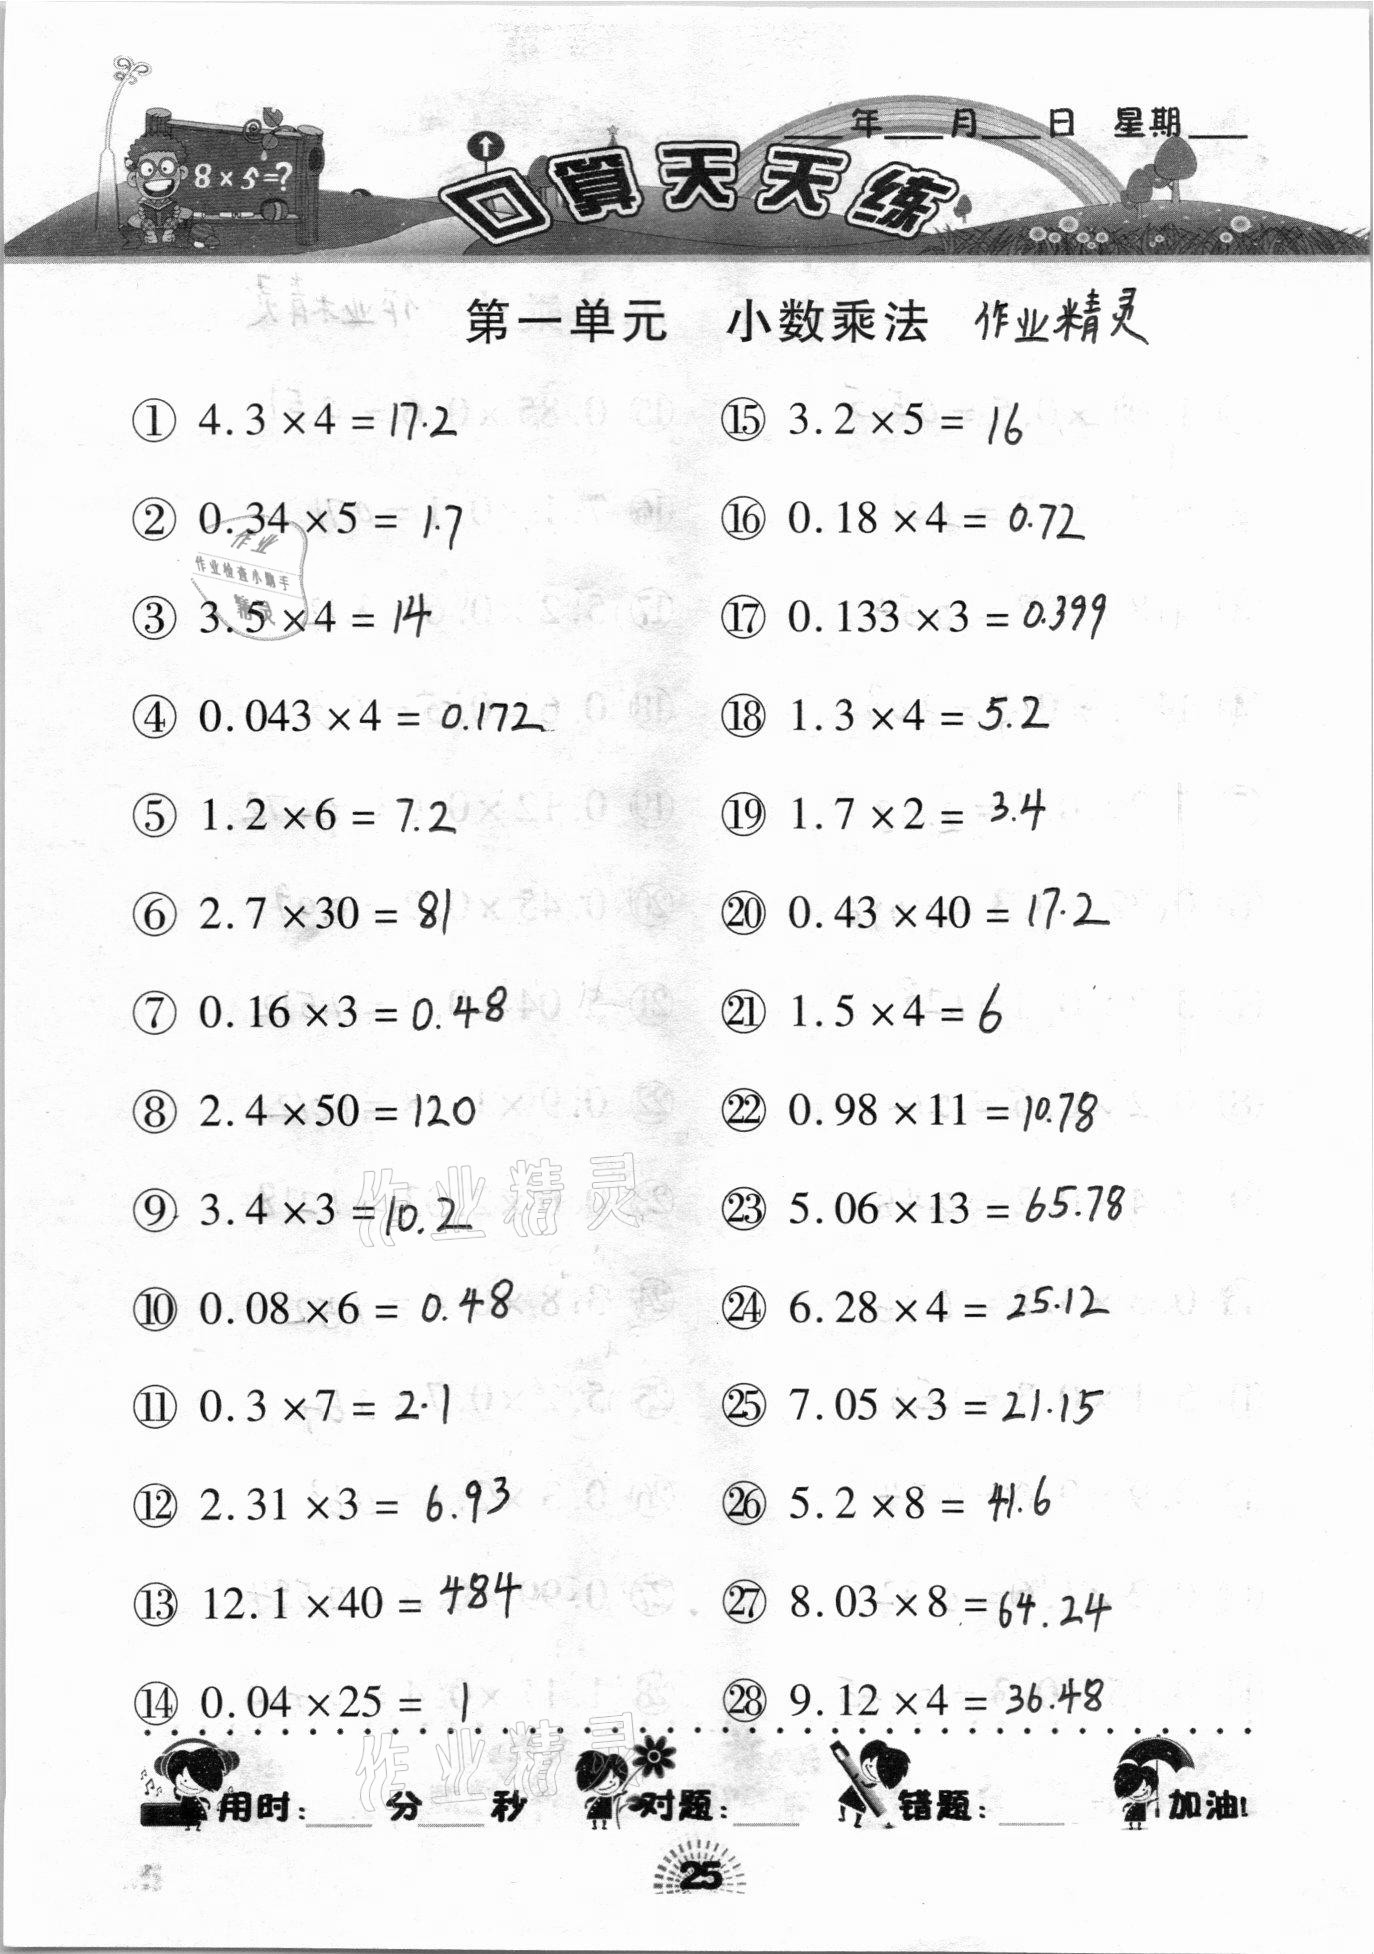 ___年___月___日 星期___
8×5=?
口算天天练
第一单元 小数乘法 作业精灵
① 4.3×4=17.2
② 0.34×5=1.7
作业
作业检查小助手
精灵
③ 3.5×4=14
④ 0.043×4=0.172
⑤ 1.2×6=7.2
⑥ 2.7×30=81
⑦ 0.16×3=0.48
⑧ 2.4×50=120
⑨ 3.4×3=10.2
⑩ 0.08×6=0.48
⑪ 0.3×7=2.1
⑫ 2.31×3=6.93
⑬ 12.1×40=484
⑭ 0.04×25=1
⑮ 3.2×5=16
⑯ 0.18×4=0.72
⑰ 0.133×3=0.399
⑱ 1.3×4=5.2
⑲ 1.7×2=3.4
⑳ 0.43×40=17.2
㉑ 1.5×4=6
㉒ 0.98×11=10.78
㉓ 5.06×13=65.78
㉔ 6.28×4=25.12
㉕ 7.05×3=21.15
㉖ 5.2×8=41.6
㉗ 8.03×8=64.24
㉘ 9.12×4=36.48
作业精灵
作业精灵
用时:___分___秒 对题:___ 错题:___ 加油!
25